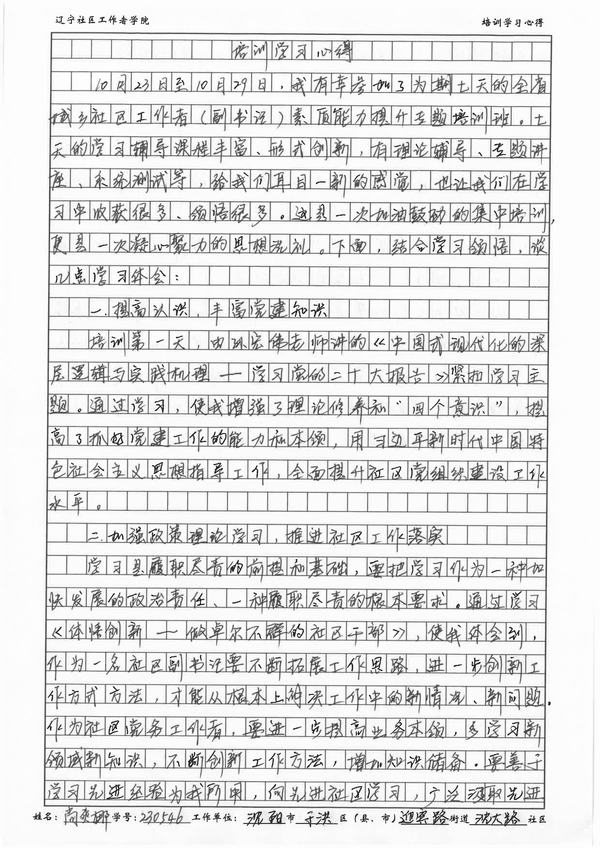 辽宁社区工作者学院 培训学习心得
培训学习心得
10月23日至10月29日，我有幸参加了为期七天的全省
城乡社区工作者（副书记）素质能力提升专题培训班。七
天的学习辅导课程丰富、形式创新，有理论辅导、专题讲
座、系统测试等，给我们耳目一新的感觉，也让我们在学
习中收获很多、领悟很多。这是一次加油鼓劲的集中培训，
更是一次凝心聚力的思想洗礼。下面，结合学习领悟，谈
几点学习体会：
一、提高认识，丰富党建知识
培训第一天，由张宏伟老师讲的《中国式现代化的深
层逻辑与实践机理—学习党的二十大报告》紧扣学习主
题。通过学习，使我增强了理论修养和“四个意识”，提
高了抓好党建工作的能力和本领，用习近平新时代中国特
色社会主义思想指导工作，全面提升社区党组织建设工作
水平。
二、加强政策理论学习，推进社区工作落实
学习是履职尽责的前提和基础，要把学习作为一种加
快发展的政治责任、一种履职尽责的根本要求。通过学习
《体悟创新—做卓尔不群的社区干部》，使我体会到，
作为一名社区副书记要不断拓展工作思路，进一步创新工
作方式方法，才能从根本上解决工作中的新情况、新问题。
作为社区党务工作者，要进一步提高业务本领，多学习新
领域新知识，不断创新工作方法，增加知识储备。要善于
学习先进经验为我所用，向先进社区学习，广泛汲取先进
姓名：尚爽娜 学号：230546 工作单位：沈阳市于洪区（县、市）迎宾路街道沈大路社区